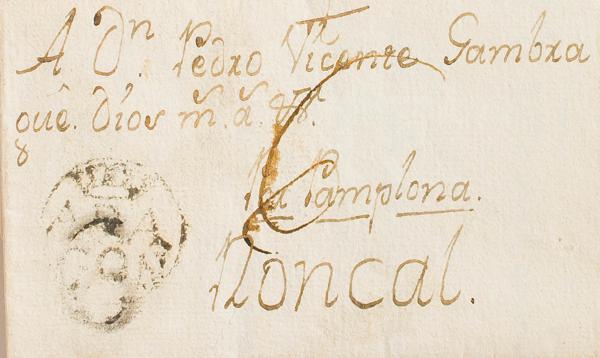 A Dn. Pedro Vicente Gambra
que. Dios m.s a.s &.
Pamplona.
Roncal.